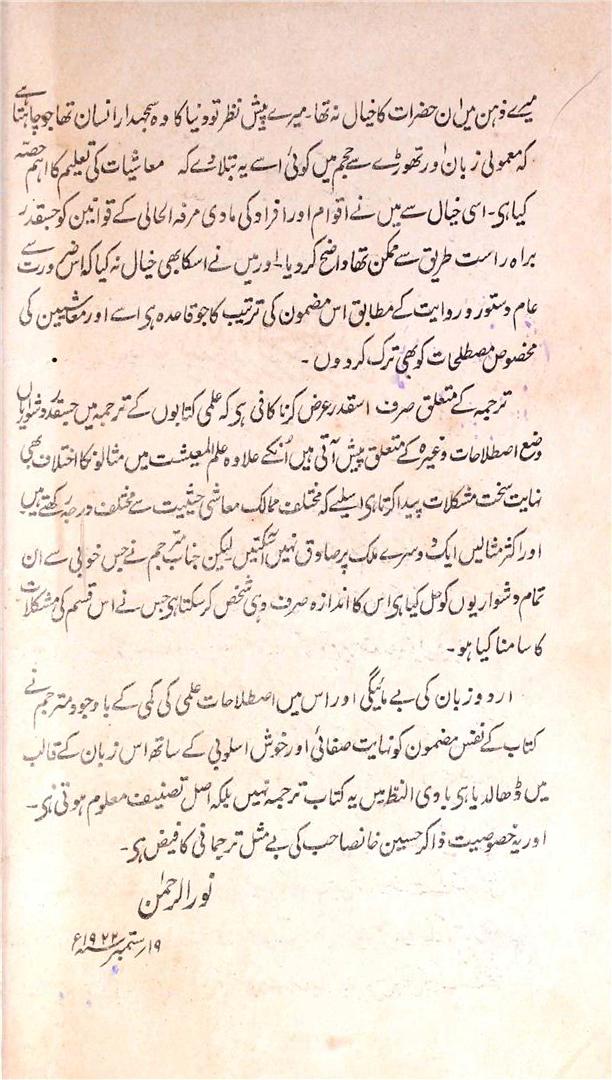 میرے ذہن میں ان حضرات کا خیال نہ تھا۔ میرے پیش نظر تو دنیا کا وہ سمجھدار انسان تھا جو چاہتا ہے
کہ معمولی زبان اور تھوڑے سے حجم میں کوئی اسے یہ بتلاوے کہ معاشیات کی تعلیم کا اہم حصہ
کیا ہی۔ اسی خیال سے میں نے اقوام اور افراد کی مادی مرفہ الحالی کے قوانین کو جسقدر
براہ راست طریق سے ممکن تھا واضح کر دیا۔ اور میں نے اسکا بھی خیال نہ کیا کہ اس ضرورت سے
عام دستور و روایت کے مطابق اس مضمون کی ترتیب کا جو قاعدہ ہی اسے اور معاشیین کی
مخصوص مصطلحات کو بھی ترک کر دوں ۔
ترجمہ کے متعلق صرف اسقدر عرض کرنا کافی ہی کہ علمی کتابوں کے ترجمہ میں جسقدر دشواریاں
وضع اصطلاحات وغیرہ کے متعلق پیش آتی ہیں اُنکے علاوہ علم المعیشت میں مثالونکا اختلاف بھی
نہایت سخت مشکلات پیدا کرتا ہی اسلیے کہ مختلف ممالک معاشی حیثیت سے مختلف درجہ رکھتے ہیں
اور اکثر مثالیں ایک دوسرے ملک پر صادق نہیں آسکتیں۔ لیکن جناب مترجم نے جس خوبی سے ان
تمام دشواریوں کو حل کیا ہی اس کا اندازہ صرف وہی شخص کرسکتا ہی جس نے اس قسم کی مشکلات
کا سامنا کیا ہو ۔
اردو زبان کی بے مائیگی اور اس میں اصطلاحات علمی کی کمی کے باوجود مترجم نے
کتاب کے نفس مضمون کو نہایت صفائی اور خوش اسلوبی کے ساتھ اس زبان کے قالب
میں ڈھالدیا ہی بادی النظر میں یہ کتاب ترجمہ نہیں بلکہ اصل تصنیف معلوم ہوتی ہی۔
اور یہ خصوصیت ذاکر حسین خانصاحب کی بے مثل ترجمانی کا فیض ہی۔
نور الرحمٰن
۱۹ ستمبر ۱۹۲۲ء